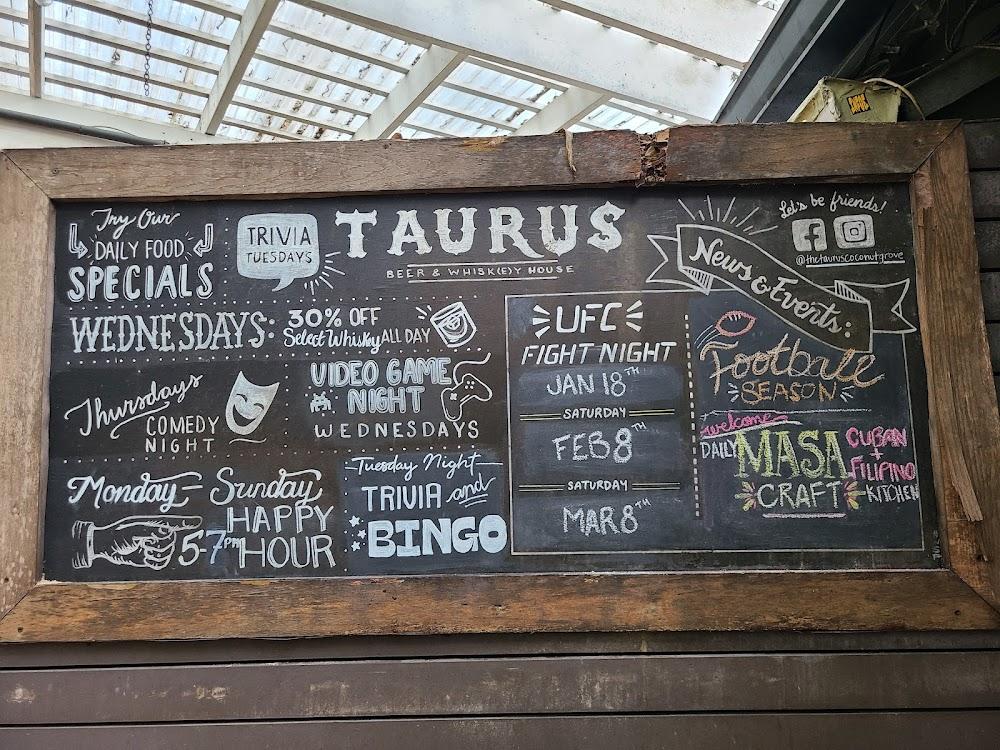 Try Our
DAILY FOOD
SPECIALS
TRIVIA
TUESDAYS
TAURUS
BEER & WHISK(E)Y HOUSE
News & Events:
Let's be friends!
@thetauruscoconutgrove
WEDNESDAYS:
30% OFF
Select Whisky ALL DAY
Thursdays
COMEDY
NIGHT
VIDEO GAME
NIGHT
WEDNESDAYS
Monday - Sunday
HAPPY
5-7PM HOUR
Tuesday Night
TRIVIA and
BINGO
UFC
FIGHT NIGHT
JAN 18TH
SATURDAY
FEB 8TH
SATURDAY
MAR 8TH
Football
SEASON
welcome
DAILY MASA
CRAFT
CUBAN
+
FILIPINO
KITCHEN